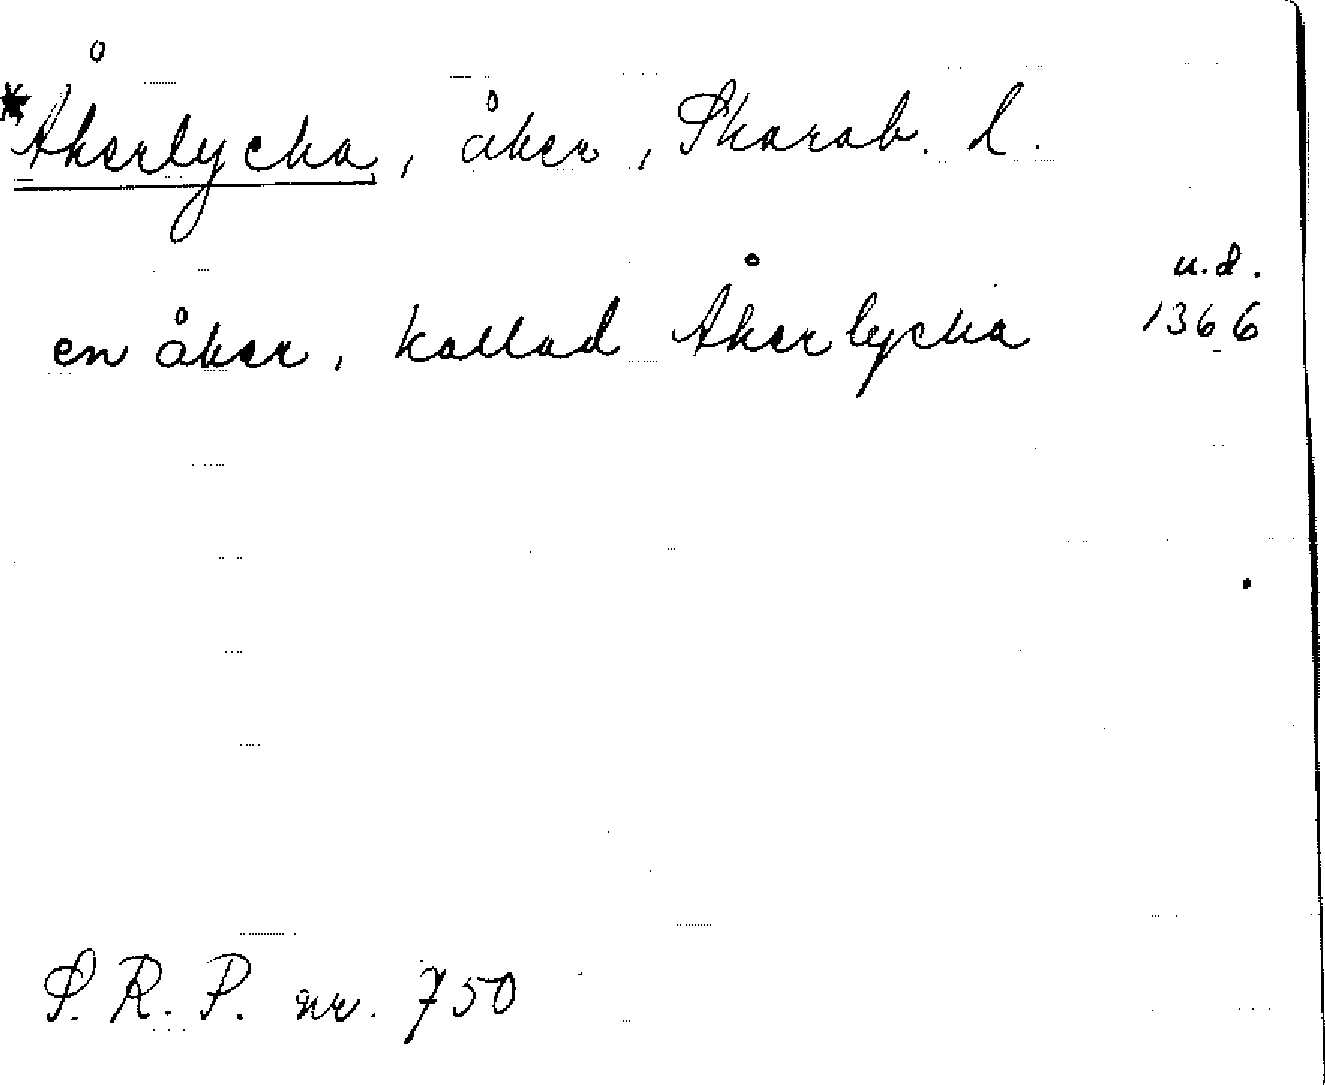 *Åkerlycka, åker, Skarab. l.
u.d.
en åker, kallad Åkerlycka 1366
S.R.P. nr. 750